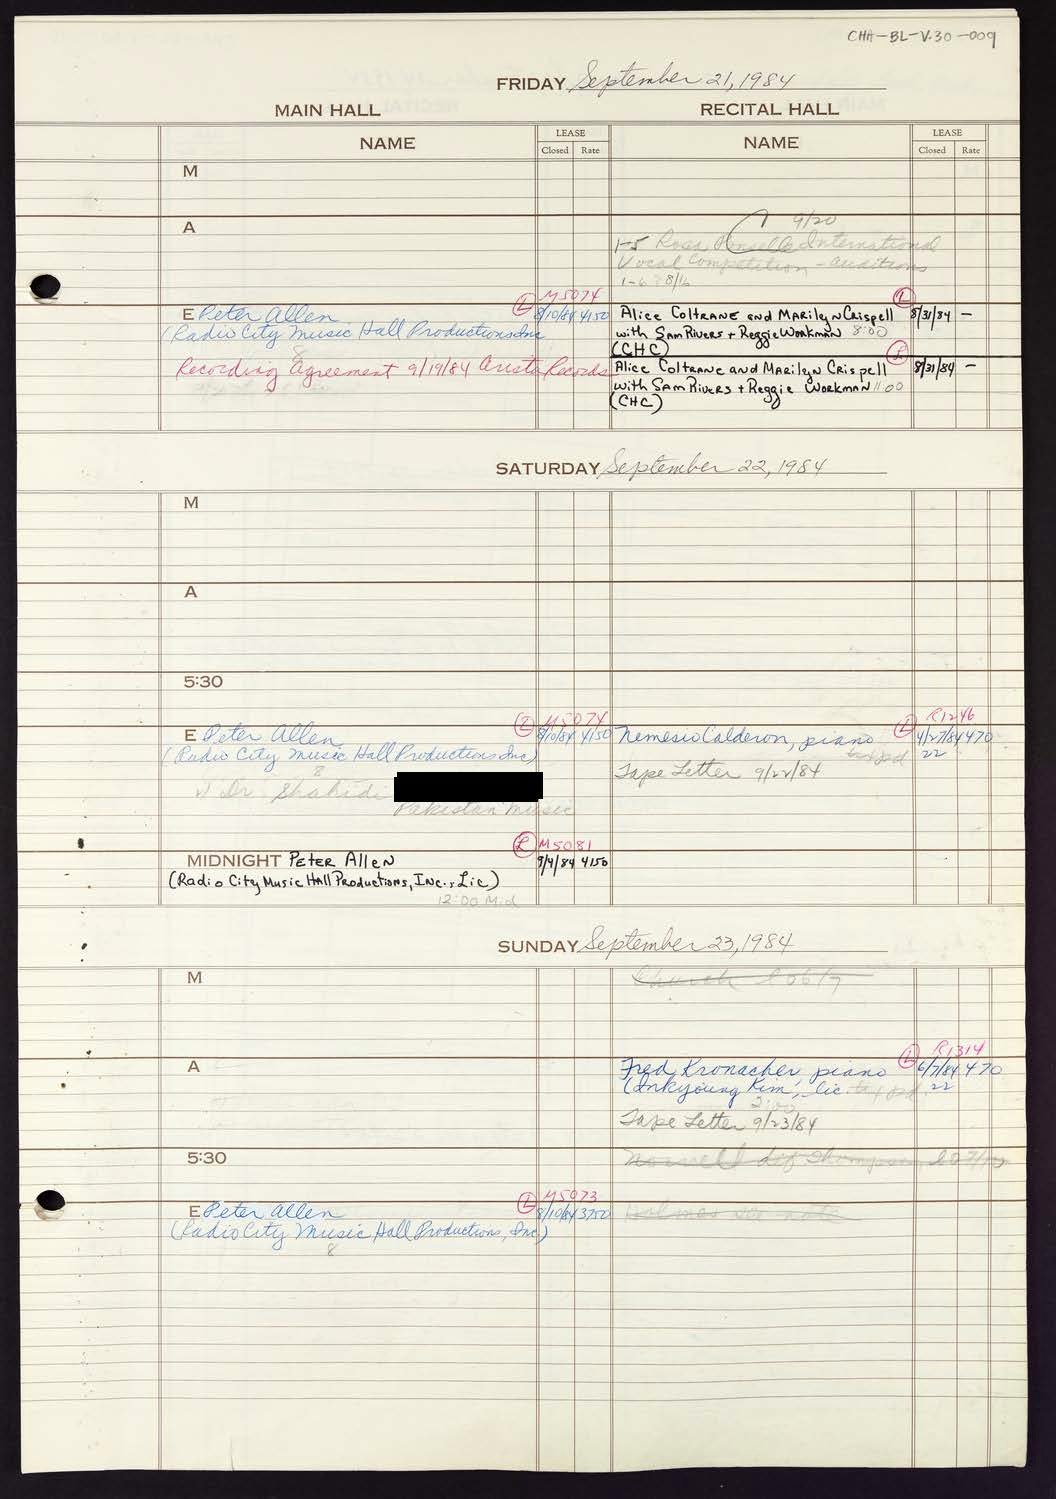 CHA-BL-V.30-009
FRIDAY September 21, 1984
MAIN HALL
RECITAL HALL
NAME
LEASE
Closed Rate
NAME
LEASE
Closed Rate
M
A
9/20
1-5 Rosa Ponselle International
Vocal Competition - auditions
8/16
E Peter Allen
(L) M5074
8/10/84 4150
(Radio City Music Hall Productions Inc
8
Recording Agreement 9/19/84 Arista Records
Alice Coltrane and Marilyn Crispell
(L)
8/31/84 -
with Sam Rivers + Reggie Workman 8:00
(CHC)
Alice Coltrane and Marilyn Crispell
(L)
8/31/84 -
with Sam Rivers + Reggie Workman 11:00
(CHC)
SATURDAY September 22, 1984
M
A
5:30
E Peter Allen
(L) M5074
8/10/84 4150
(Radio City Music Hall Productions Inc)
8
Dr. Shahidi
Pakistan Music
Nemesio Calderon, piano
(L) R1246
4/27/84 470
tax pd 22
Tape Letter 9/22/84
MIDNIGHT Peter Allen
(L) M5081
9/4/84 4150
(Radio City Music Hall Productions, Inc., Lic)
12:00 Mid
SUNDAY September 23, 1984
M
Church
A
Fred Kronacher, piano
(L) R1314
6/7/84 470
(Inkyoung Kim, lic. tax pd. 22
2:00
Tape Letter 9/23/84
5:30
E Peter Allen
(L) M5073
8/10/84 3750
(Radio City Music Hall Productions, Inc.)
8